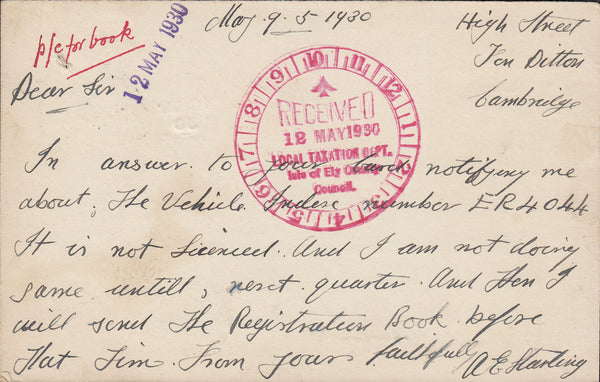 p/c for book
12 MAY 1930
May 9-5 1930
High Street
Fen Ditton
Cambridge
Dear Sir
9 10 11 12 1 2 3 4 5 6 7 8
RECEIVED
12 MAY 1930
LOCAL TAXATION DEPT.
Isle of Ely County
Council.
In answer to your card notifying me
about, The Vehicle Index number ER4044
It is not Licenced. And I am not doing
same untill, next quarter. And then I
will send the Registration Book before
that time. From yours faithfull A E Starling